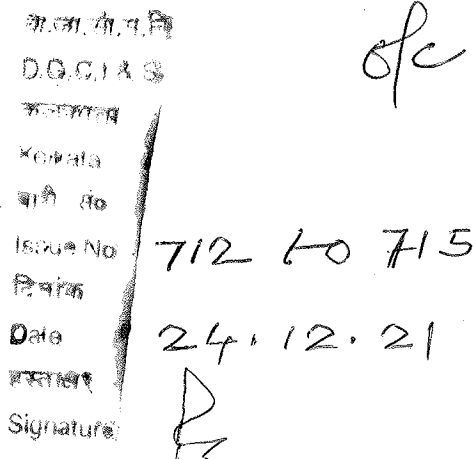 o/c
वा.जा.सां.म.नि
D.G.C.I & S
कोलकाता
Kolkata
जारी सं०
Issue No 712 to 715
दिनांक
Date 24.12.21
हस्ताक्षर
Signature